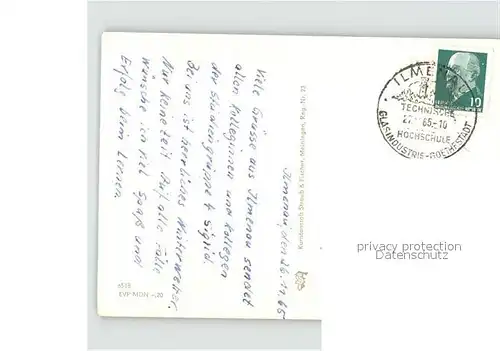 Ilmenau, den 26.11.65
Viele Grüsse aus Ilmenau sendet
allen Kolleginnen und Kollegen
der Studiengruppe 4 Sigrid.
Bei uns ist herrliches Winterwetter.
Nur keine Zeit. Auf alle Fälle
wünsche ich viel Spaß und
Erfolg beim Lernen
Kunstanstalt Straub & Fischer, Meiningen, Reg.-Nr. 23
EVP MDN -,20
ILMENAU
TECHNISCHE
65-10
HOCHSCHULE
GLASINDUSTRIE-GOETHESTADT
10
privacy protection
Datenschutz